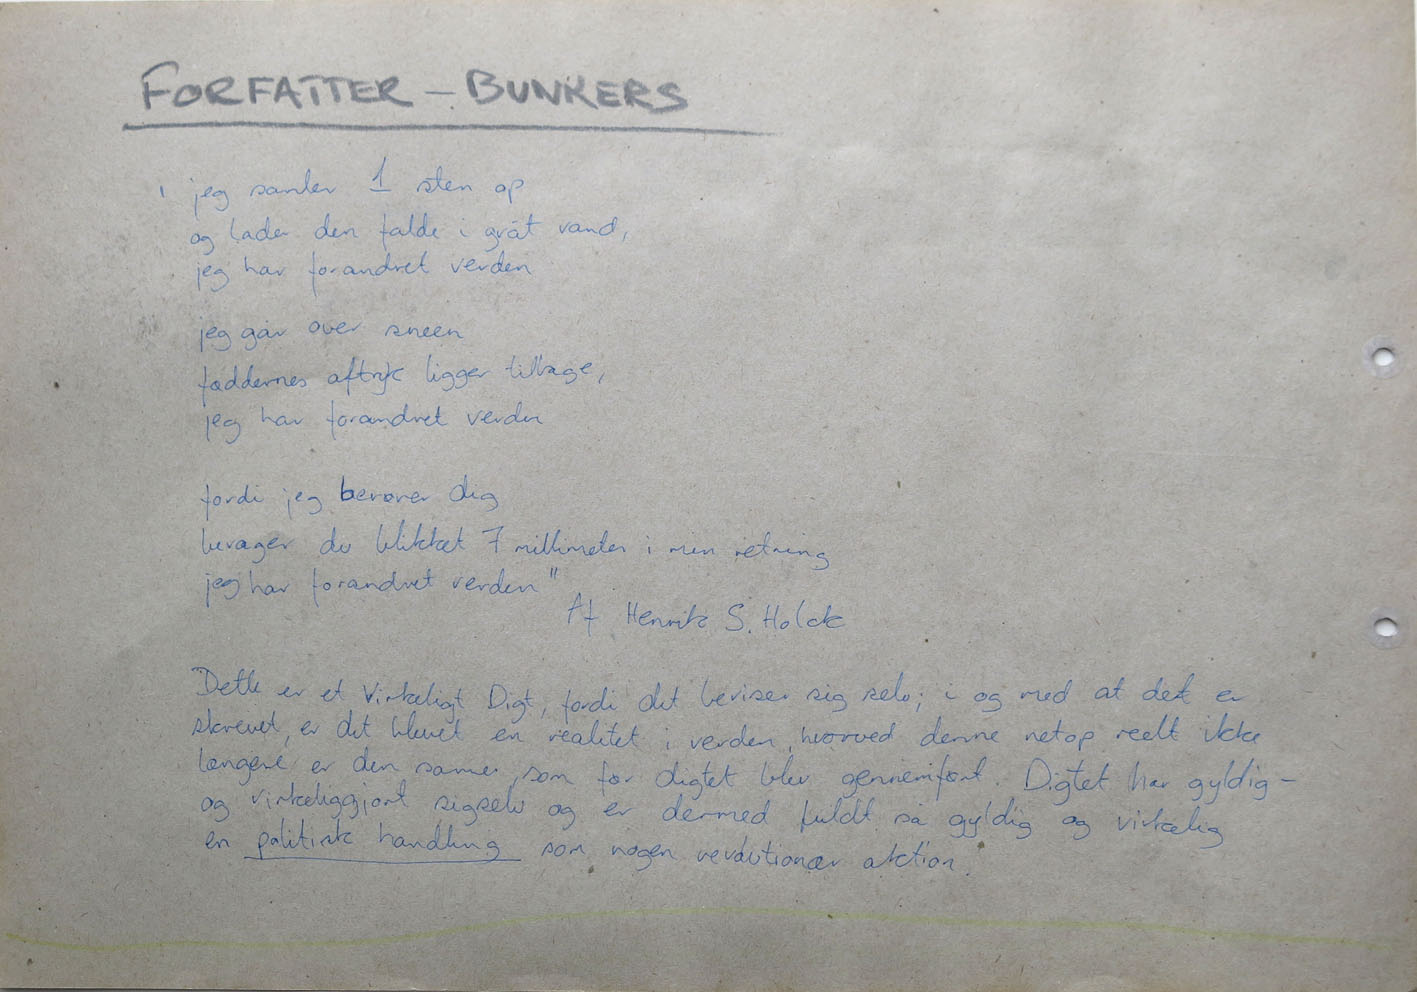 FORFATTER – BUNKERS
' jeg samler 1 sten op
og lader den falde i gråt vand,
jeg har forandret verden
jeg går over sneen
føddernes aftryk ligger tilbage,
jeg har forandret verden
fordi jeg berører dig
bevæger du blikket 7 millimeter i min retning
jeg har forandret verden"
Af Henrik S. Holck
Dette er et Virkeligt Digt, fordi det beviser sig selv; i og med at det er
skrevet, er det blevet en realitet i verden, hvorved denne netop reelt ikke
længere er den samme, som før digtet blev gennemført. Digtet har gyldig-
og virkeliggjort sigselv og er dermed fuldt så gyldig og virkelig
en politisk handling som nogen revolutionær aktion.